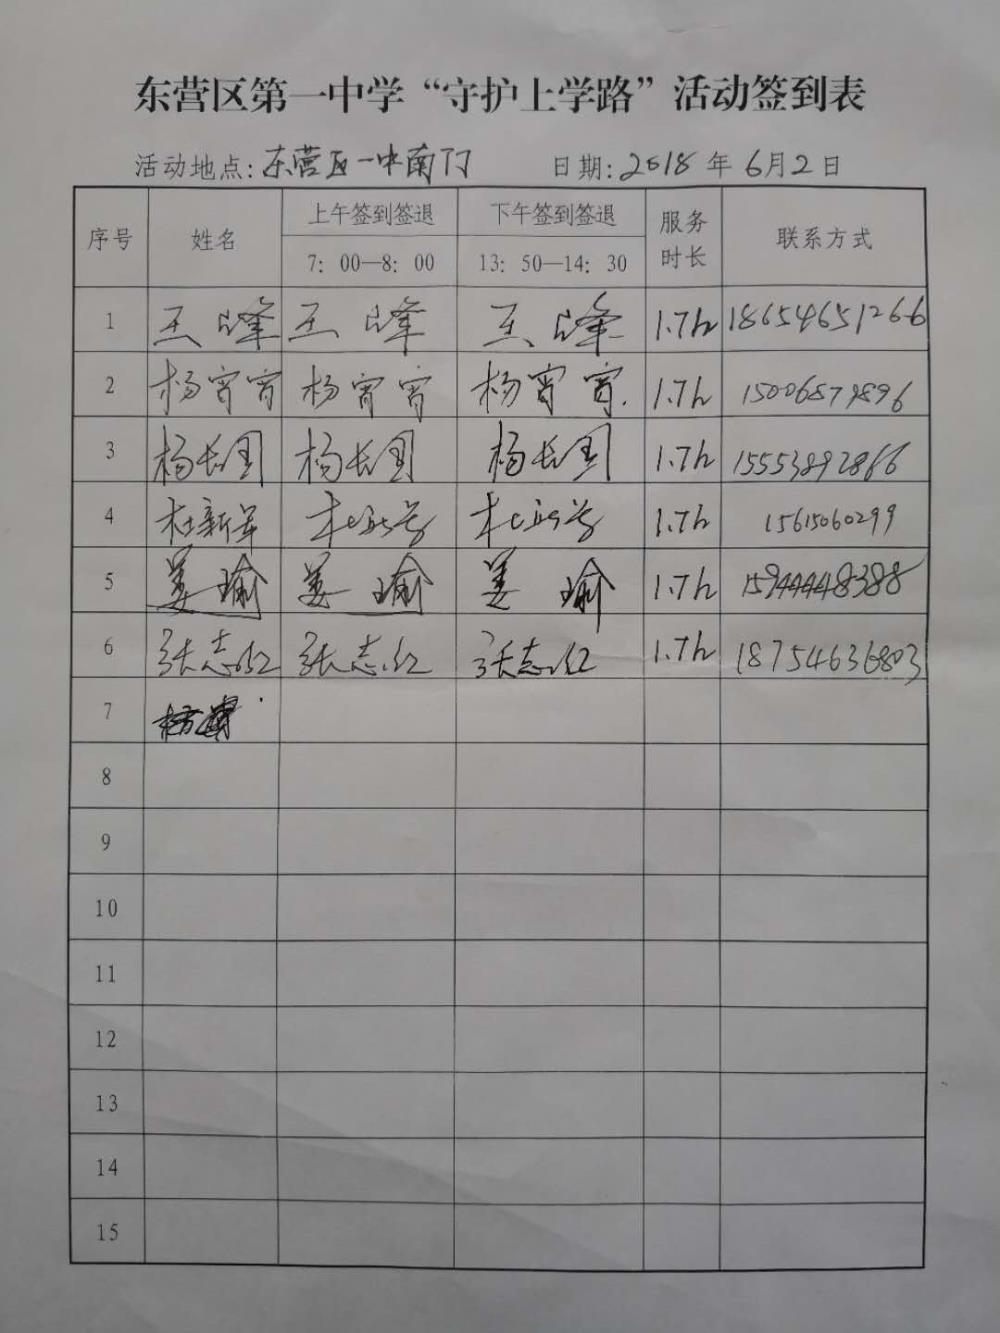 东营区第一中学“守护上学路”活动签到表
活动地点: 东营区一中南门 日期: 2018 年 6月2日
序号 姓名 上午签到签退 下午签到签退 服务时长 联系方式
7: 00—8: 00 13: 50—14: 30
1 王峰 王峰 王峰 1.7h 18654651266
2 杨宵宵 杨宵宵 杨宵宵 1.7h 15006879896
3 杨长国 杨长国 杨长国 1.7h 15553892866
4 杜新军 1.7h 15615060299
5 姜瑜 姜瑜 姜瑜 1.7h
6 张志红 张志红 张志红 1.7h 18754636803
7
8
9
10
11
12
13
14
15